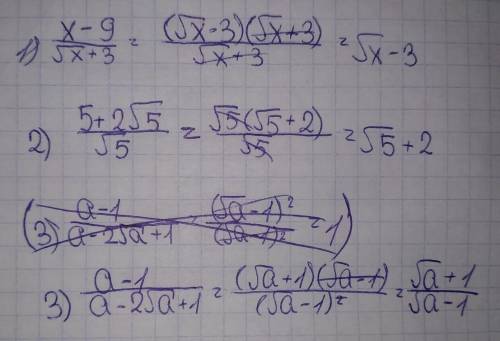 1) (x-9)/(√x+3) = ((√x-3)(√x+3))/(√x+3) = √x-3
2) (5+2√5)/√5 = (√5(√5+2))/√5 = √5+2
(3) (a-1)/(a-2√a+1) = (√a-1)²/(√a-1)² = 1)
3) (a-1)/(a-2√a+1) = ((√a+1)(√a-1))/(√a-1)² = (√a+1)/(√a-1)